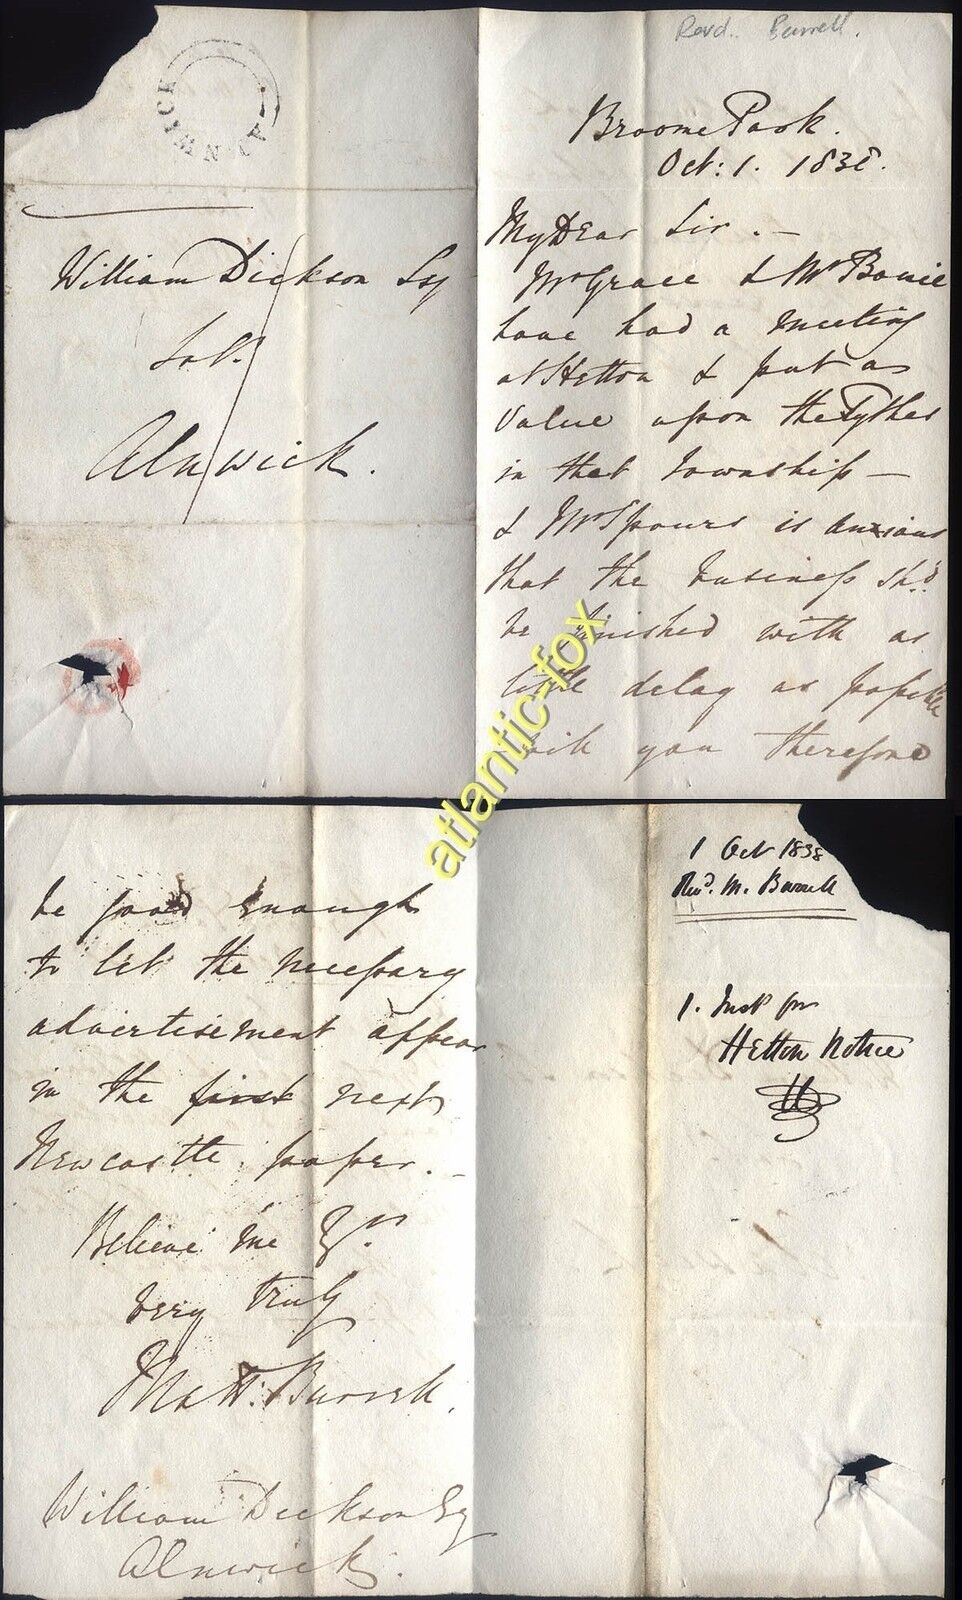 Revd. Burrell.
ALNWICK
Broome Park.
Oct: 1. 1838.
William Dickson Esq
Solr.
Alnwick.
My Dear Sir. —
Mr Grace & Mr Bowie
have had a meeting
at Hetton & put a
value upon the Tythes
in that Township —
& Mr Spours is anxious
that the business shd.
be finished with as
little delay as possible
will you therefore
atlantic-fox
be good enough
to let the necessary
advertisement appear
in the first next
Newcastle paper. —
Believe me Yr.
very truly
Matt: Burrell.
William Dickson Esq
Alnwick.
1 Oct 1838
Revd. M. Burrell
1. Inst for
Hetton Notice